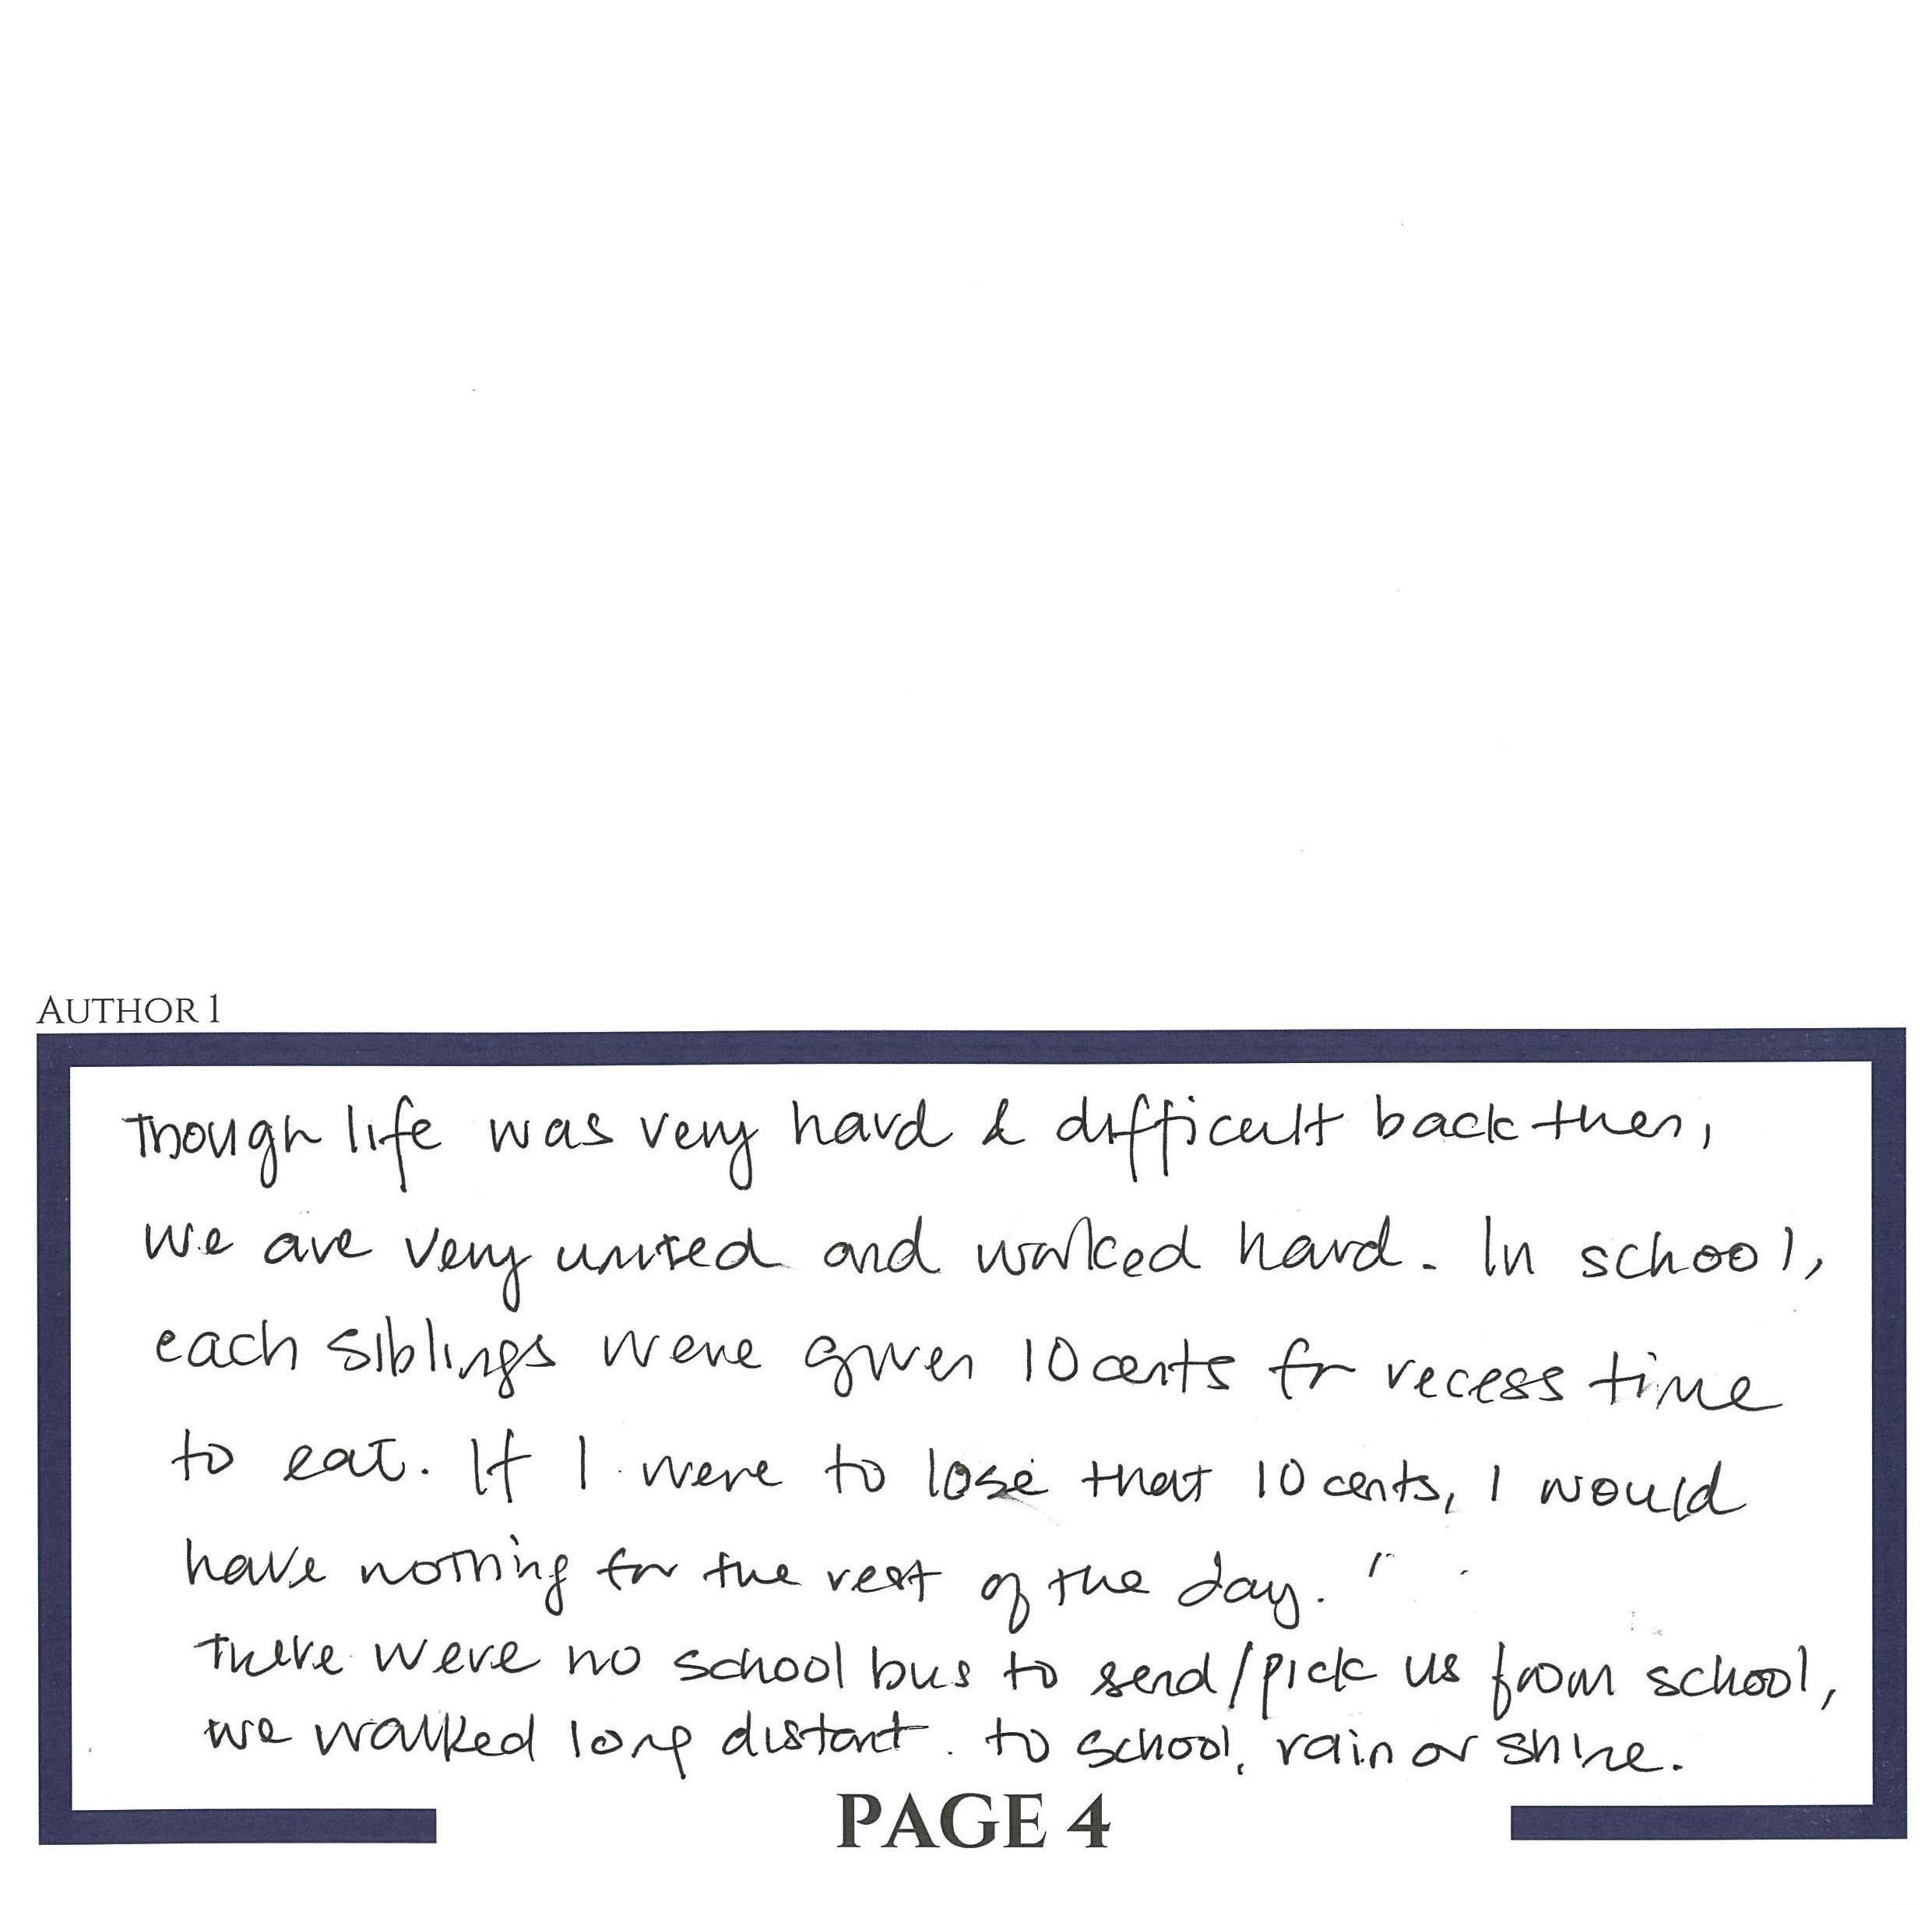 AUTHOR 1
Though life was very hard & difficult back then,
we are very united and worked hard. In school,
each siblings were given 10 cents for recess time
to eat. If I were to lose that 10 cents, I would
have nothing for the rest of the day.
There were no school bus to send/pick us from school,
we walked long distant to school, rain or shine.
PAGE 4